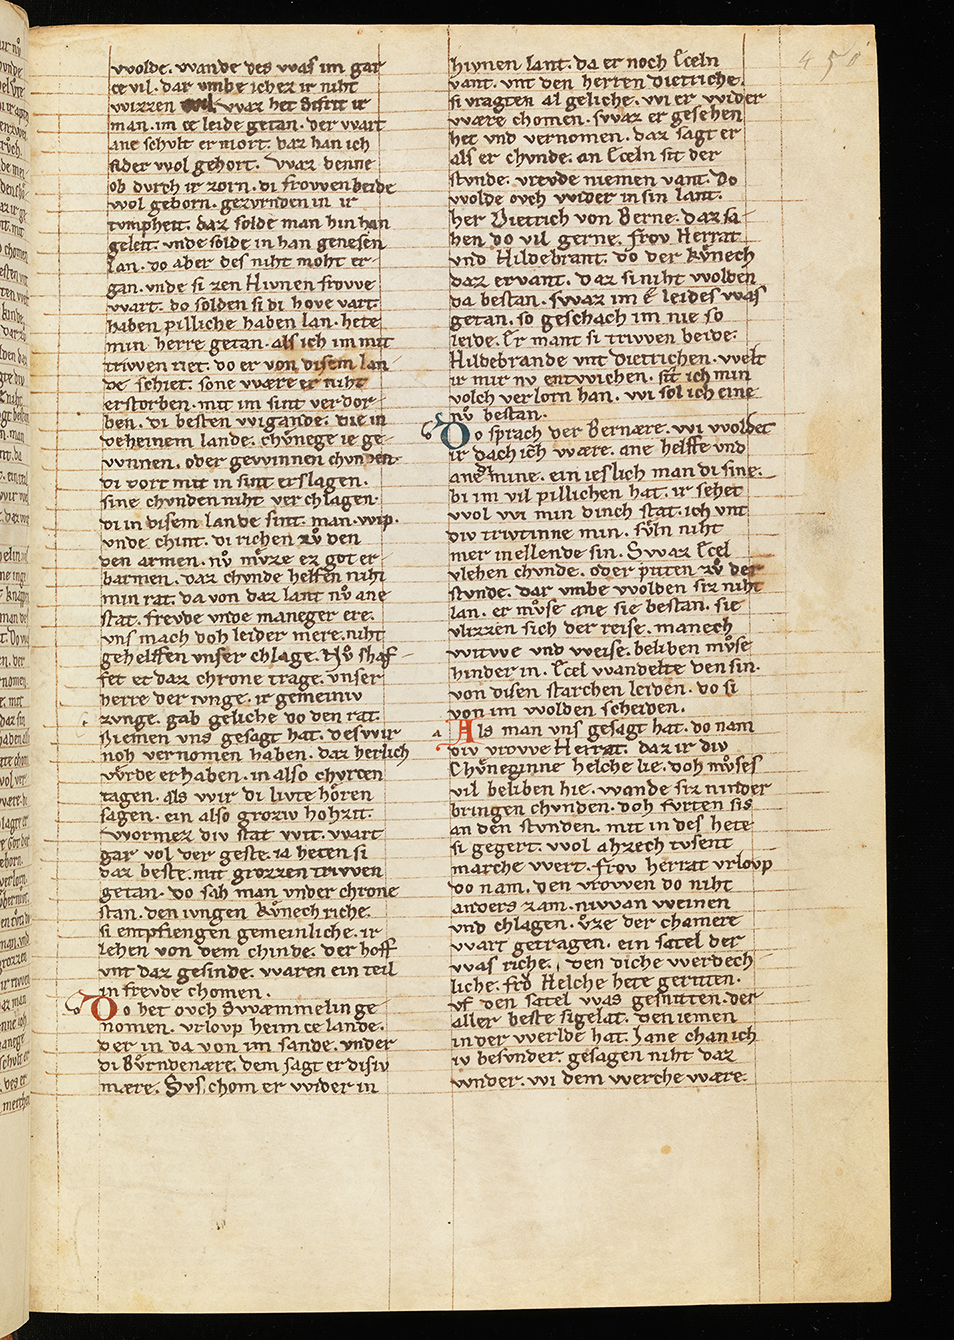 wolde. wande des was im gar
ce vil. dar vmbe ichez ir niht
wizzen wil. waz het Sifrit ir
man. im ce leide getan. der wart
ane schvlt ermort. daz han ich
sider wol gehort. Waz denne
ob dvrch ir zorn. di frowen beide
wol geborn. gezvrnden in ir
tvmpheit. daz solde man hin han
geleit. vnde solde in han genesen
lan. do aber des niht moht er-
gan. vnde si zen Hivnen frowe
wart. do solden si di hove vart.
haben pilliche haben lan. hete
min herre getan. als ich im mit
triwen riet. do er von disem lan
de schiet. sone wære er niht
erstorben. mit im sint verdor-
ben. di besten wigande. die in
deheinem lande. chv̊nege ie ge-
wnnen. oder gewinnen chvnden.
di dort mit in sint erslagen.
sine chvnden niht verchlagen.
di in disem lande sint. man. wip.
vnde chint. di richen zv̊ den
den armen. nv̊ mv̊ze ez got er-
barmen. daz chvnde helfen niht
min rat. da von daz lant nv̊ ane
stat. frevde vnde maneger ere.
vns mach doh leider mere. niht
gehelffen vnser chlage. Nv̊ shaf-
fet et daz chrone trage. vnser
herre der ivnge. ir gemeiniv
zvnge. gab geliche do den rat.
Niemen vns gesagt hat. des wir
noh vernomen haben. daz herlich
wv̊rde erhaben. in also chvrcen
tagen. als wir di livte hôren
sagen. ein also groziv hohzit.
Wormez div stat wit. wart
gar vol der geste. ia heten si
daz beste. mit grozzen triwen
getan. do sah man vnder chrone
stan. den ivngen kv̊nech riche.
si entpfiengen gemeinliche. ir
lehen von dem chinde. der hoff
vnt daz gesinde. waren ein teil
in frevde chomen.
Do het ovch Swæmmelin ge
nomen. vrlovp heim ce lande.
der in da von im sande. vnder
di Bv̊rndenære. dem sagt er disiv
mære. Svs chom er wider in
hivnen lant. da er noch Eceln
vant. vnt den herren dietriche.
si vragten al geliche. wi er wider
wære chomen. swaz er gesehen
het vnd vernomen. daz sagt er
als er chvnde. an Eceln sit der
stvnde. vrevde niemen vant. Do
wolde ovch wider in sin lant.
her Dietrich von Berne. daz sa-
hen do vil gerne. frov Herrat
vnd Hildebrant. do der kv̊nech
daz ervant. daz si niht wolden
da bestan. swaz im E leides was
getan. so geschach im nie so
leide. Er mant si triwen beide.
Hildebrande vnt Dietrichen. welt
ir mir nv entwichen. sit ich min
volch verlorn han. wi sol ich eine
nv̊ bestan.
Do sprach der Bernære. wi woldet
ir dach ich wære. ane helffe vnd
ane di mine. ein ieslich man di sine.
bi im vil pillichen hat. ir sehet
wol wi min dinch stat. ich vnt
div triwtinne min. sv̊ln niht
mer in ellende sin. Swaz Ecel
vlehen chvnde. oder piiten zv̊ der
stvnde. dar vmbe wolden siz niht
lan. er mv̊se ane sie bestan. sie
vlizzen sich der reise. manech
witwe vnd weise. beliben mv̊se
hinder in. Ecel wandelte den sin.
von disen starchen leiden. do si
von im wolden scheiden.
a Als man vns gesagt hat. do nam
div vrowe Herrat. daz ir div
Chv̊neginne helche lie. doh mv̊ses
vil beliben hie. wande siz ninder
bringen chvnden. doh fvrten sis
an den stvnden. mit in des hete
si gegert. wol ahzech tvsent
marche wert. frov herrat vrlovp
do nam. den vrowen do niht
anders zam. niwan weinen
vnd chlagen. v̊ze der chamere
wart getragen. ein satel der
was riche. den diche werdech-
liche. fro Helche hete geriten.
vf den satel was gesnitten. der
aller beste sigelat. den iemen
in der werlde hat. Jane chan ich
iv besvnder. gesagen niht daz
wnder. wi dem werche wære.